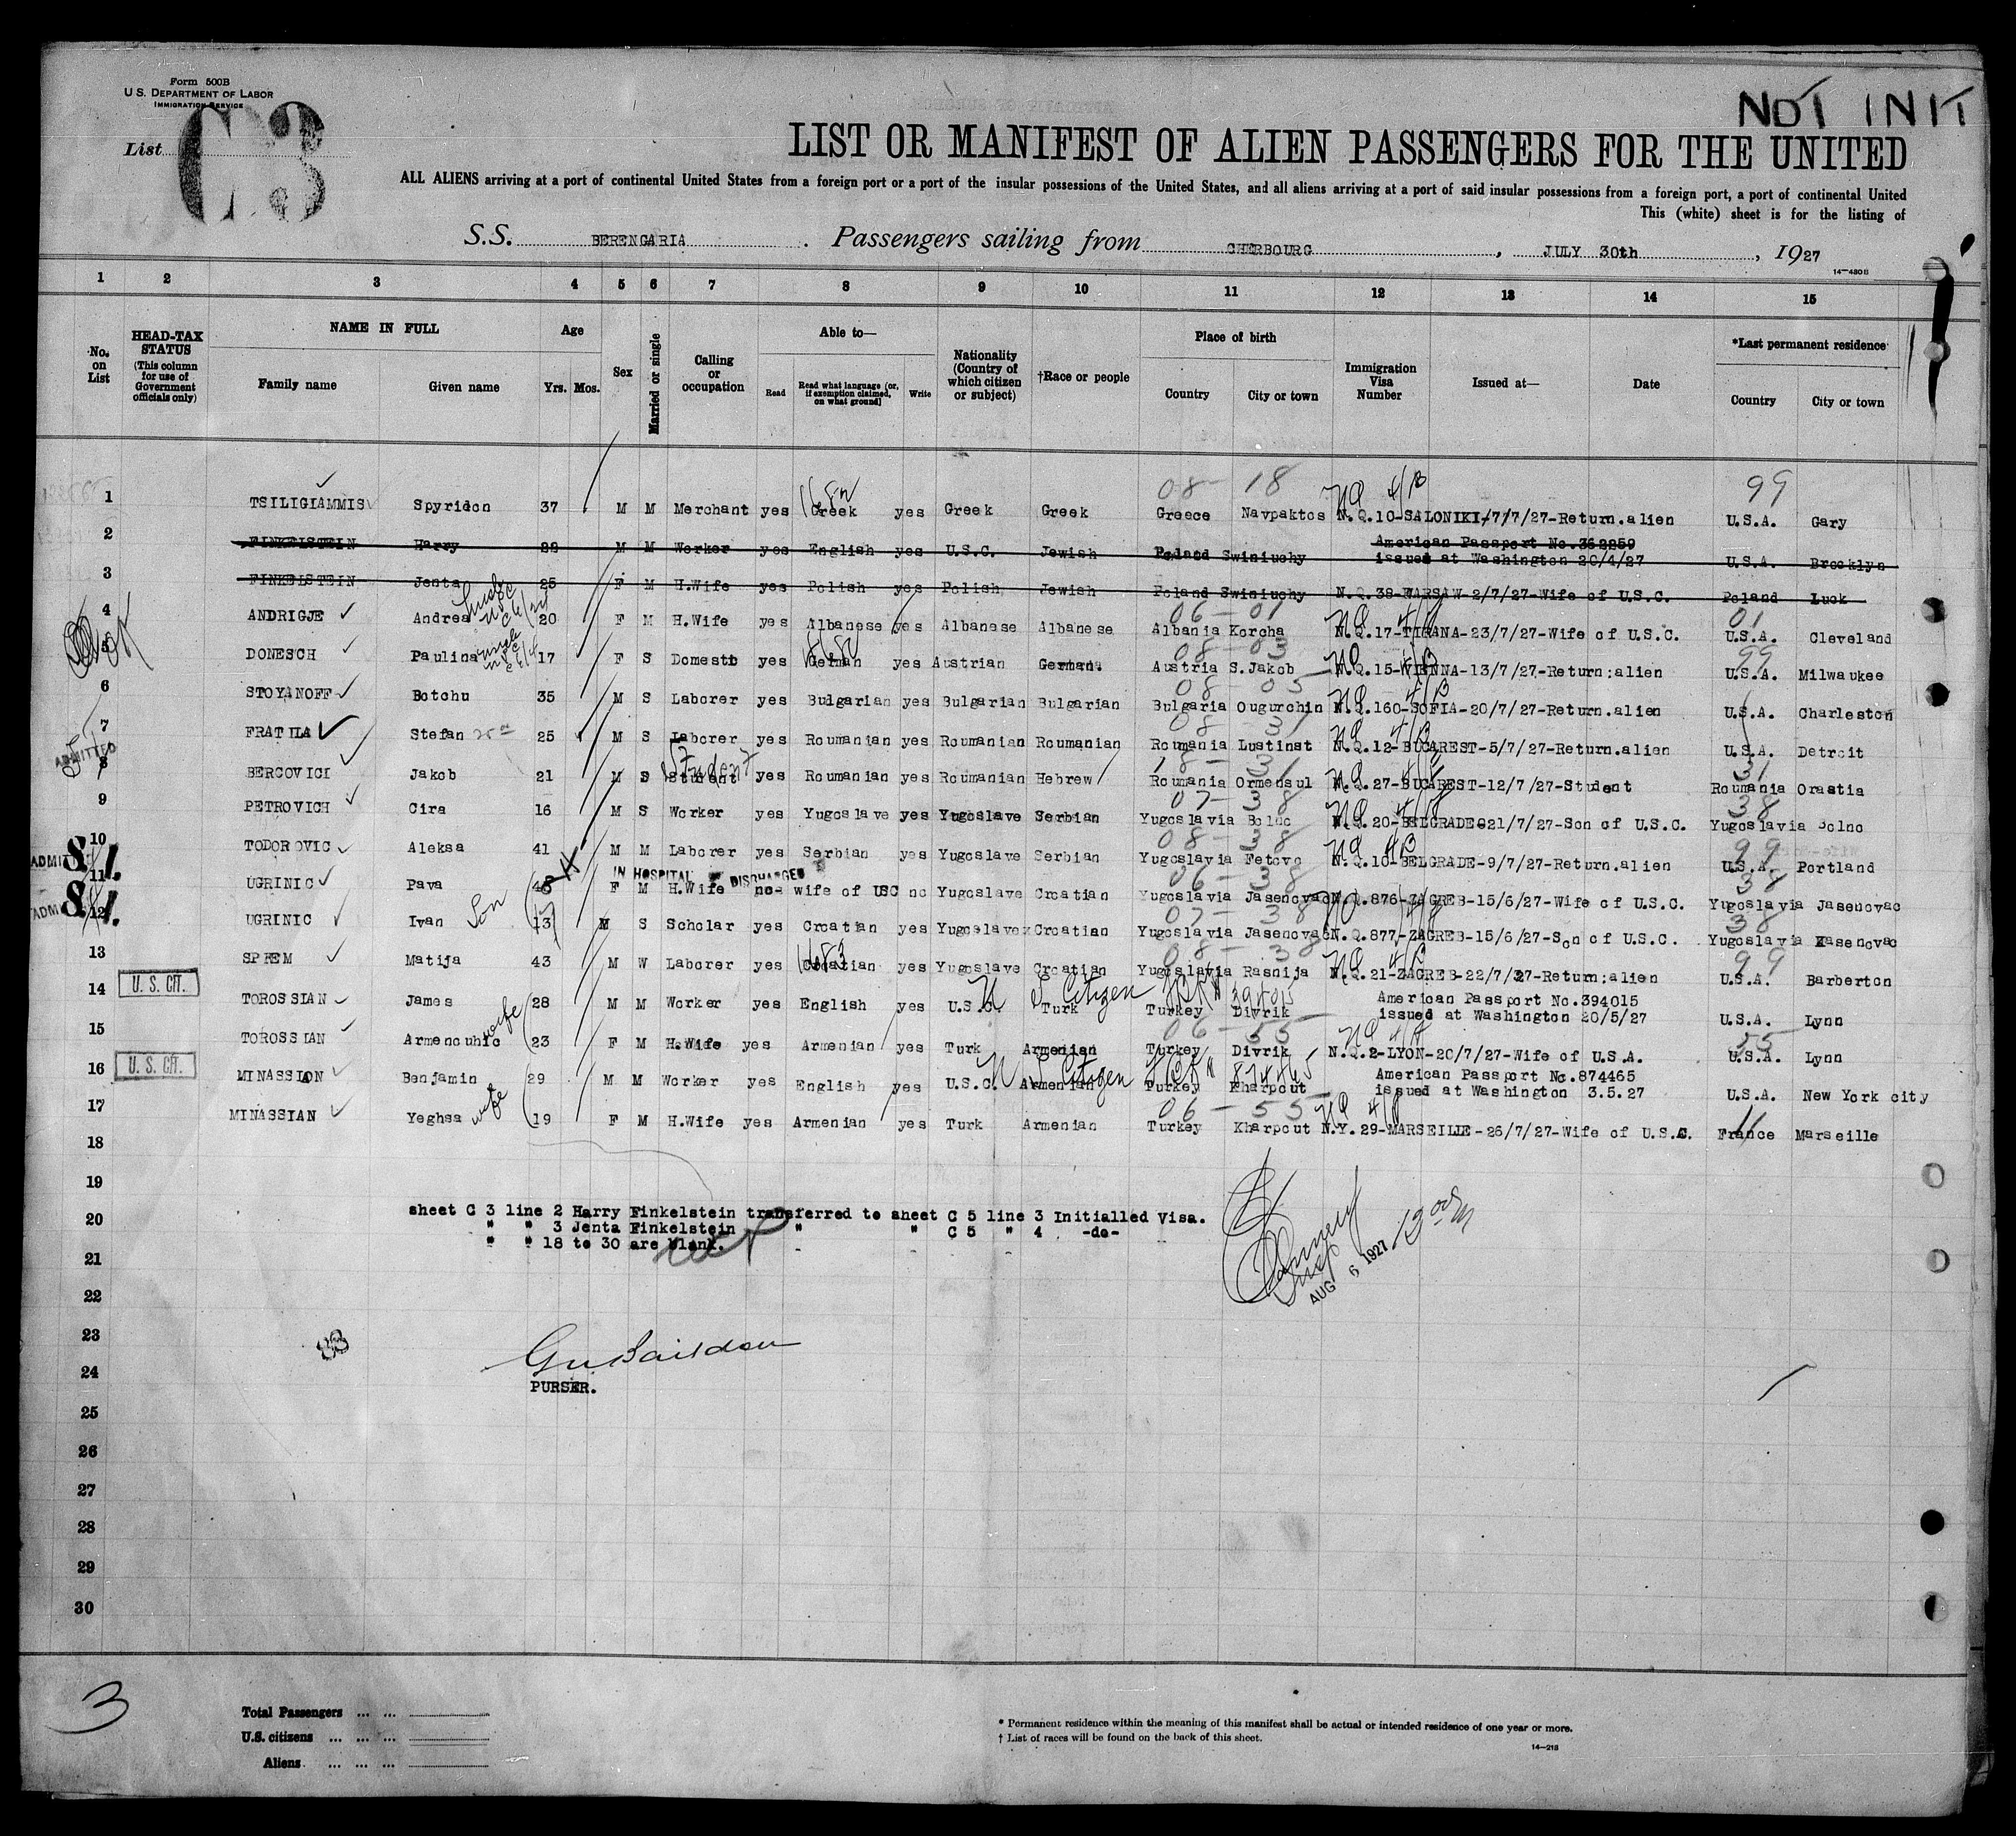 Form 500B
U.S. DEPARTMENT OF LABOR
IMMIGRATION SERVICE
NOT INIT
List C3
LIST OR MANIFEST OF ALIEN PASSENGERS FOR THE UNITED
ALL ALIENS arriving at a port of continental United States from a foreign port or a port of the insular possessions of the United States, and all aliens arriving at a port of said insular possessions from a foreign port, a port of continental United
This (white) sheet is for the listing of
S.S. BERENGARIA. Passengers sailing from CHERBOURG, JULY 30th, 1927
14-480B
1 2 3 4 5 6 7 8 9 10 11 12 13 14 15
No. on List
HEAD-TAX STATUS (This column for use of Government officials only)
NAME IN FULL
Family name Given name
Age
Yrs. Mos.
Sex
Married or single
Calling or occupation
Able to—
Read Read what language (or, if exemption claimed, on what ground) Write
Nationality (Country of which citizen or subject)
†Race or people
Place of birth
Country City or town
Immigration Visa Number
Issued at—
Date
*Last permanent residence
Country City or town
08 - 18 99
1 TSILIGIAMMIS Spyridon 37 M M Merchant yes Greek yes Greek Greek Greece Navpaktos N.Q.10-SALONIKI-7/7/27-Return.alien U.S.A. Gary
2 FINKELSTEIN Harry 28 M M Worker yes English yes U.S.C. Jewish Poland Swiniuchy American Passport No.362259 issued at Washington 20/4/27 U.S.A. Brooklyn
3 FINKELSTEIN Jenta 25 F M H.Wife yes Polish yes Polish Jewish Poland Swiniuchy N.Q.38-WARSAW-2/7/27-Wife of U.S.C. Poland Luck
06 - 01 01
4 ANDRIGJE Andrea 20 F M H.Wife yes Albanese yes Albanese Albanese Albania Korcha N.Q.17-TIRANA-23/7/27-Wife of U.S.C. U.S.A. Cleveland
08 - 03 99
5 DONESCH Paulina 17 F S Domestc yes German yes Austrian German Austria S.Jakob N.Q.15-VIENNA-13/7/27-Return:alien U.S.A. Milwaukee
08 - 05
6 STOYANOFF Botchu 35 M S Laborer yes Bulgarian yes Bulgarian Bulgarian Bulgaria Ougurchin N.Q.160-SOFIA-20/7/27-Return.alien U.S.A. Charleston
08 - 31
7 FRATILA Stefan 25 M S Laborer yes Roumanian yes Roumanian Roumanian Roumania Lustinst N.Q.12-BUCAREST-5/7/27-Return.alien U.S.A. Detroit
ADMITTED
Student
31
8 BERCOVICI Jakob 21 M S Student yes Roumanian yes Roumanian Hebrew Roumania Ormensul N.Q.27-BUCAREST-12/7/27-Student Roumania Orastia
07 - 38 38
9 PETROVICH Cira 16 M S Worker yes Yugoslave yes Yugoslave Serbian Yugoslavia Bolno N.Q.20-BELGRADE-21/7/27-Son of U.S.C. Yugoslavia Bolno
08 - 38 99
10 TODOROVIC Aleksa 41 M M Laborer yes Serbian yes Yugoslave Serbian Yugoslavia Fetovo N.Q.10-BELGRADE-9/7/27-Return.alien U.S.A. Portland
IN HOSPITAL DISCHARGED
06 - 38 38
11 UGRINIC Pava F M H.Wife no- wife of USC no Yugoslave Croatian Yugoslavia Jasenovac N.Q.876-ZAGREB-15/6/27-Wife of U.S.C. Yugoslavia Jasenovac
07 - 38 38
12 UGRINIC Ivan Son 13 M S Scholar yes Croatian yes Yugoslave Croatian Yugoslavia Jasenovac N.Q.877-ZAGREB-15/6/27-Son of U.S.C. Yugoslavia Kasenovac
08 - 38 99
13 SPREM Matija 43 M W Laborer yes Croatian yes Yugoslave Croatian Yugoslavia Rasnija N.Q.21-ZAGREB-22/7/27-Return:alien U.S.A. Barberton
U.S. CIT.
U S Citizen
14 TOROSSIAN James 28 M M Worker yes English yes U.S.C. Turk Turkey Divrik American Passport No.394015 issued at Washington 20/5/27 U.S.A. Lynn
06 - 55 55
15 TOROSSIAN Armenouhic wife 23 F M H.Wife yes Armenian yes Turk Armenian Turkey Divrik N.Q.2-LYON-20/7/27-Wife of U.S.A. U.S.A. Lynn
U.S. CIT.
U S Citizen 874465
16 MINASSION Benjamin 29 M M Worker yes English yes U.S.C. Armenian Turkey Kharpout American Passport No.874465 issued at Washington 3.5.27 U.S.A. New York city
06 - 55
17 MINASSIAN Yeghsa wife 19 F M H.Wife yes Armenian yes Turk Armenian Turkey Kharpout N.Y.29-MARSEILLE-26/7/27-Wife of U.S.C. France Marseille
18
19
20
21
22
23
24
25
26
27
28
29
30
sheet C 3 line 2 Harry Finkelstein transferred to sheet C 5 line 3 Initialled Visa.
" " 3 Jenta Finkelstein " " C 5 " 4 -do-
" " 18 to 30 are blank.
AUG 6 1927
88
PURSER.
3
Total Passengers ... ...
U.S. citizens ... ... ...
Aliens ... ... ...
* Permanent residence within the meaning of this manifest shall be actual or intended residence of one year or more.
† List of races will be found on the back of this sheet.
14-218